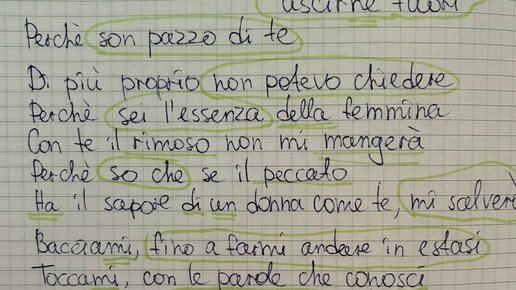 uscirne fuori
Perchè son pazzo di te
Di più proprio non potevo chiedere
Perchè sei l'essenza della femmina
Con te il rimoso non mi mangerà
Perchè so che se il peccato
Ha il sapore di un donna come te, mi scelverà
Baciami, fino a farmi andare in estasi
Toccami, con le parole che conosci